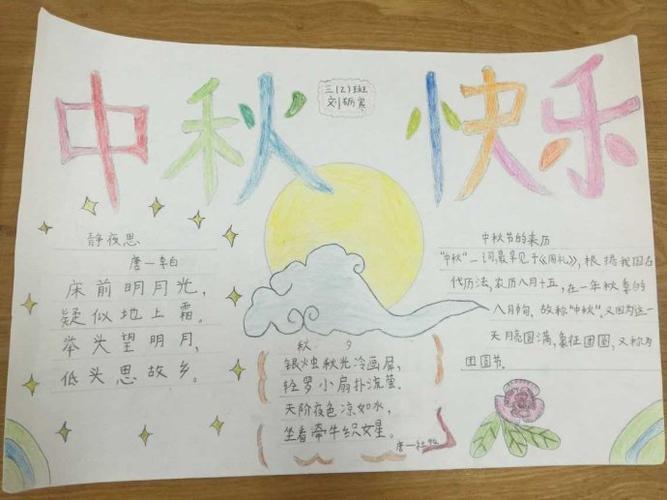 中秋快乐
三(2)班
刘砺寒
静夜思
唐一李白
床前明月光，
疑似地上霜。
举头望明月，
低头思故乡。
秋夕
银烛秋光冷画屏，
轻罗小扇扑流萤。
天阶夜色凉如水，
坐看牵牛织女星。
唐一杜牧
中秋节的来历
"中秋"一词，最早见于《周礼》，根据我国古
代历法，农历八月十五，在一年秋季的
八月中旬，故称"中秋"。又因为这一
天月亮圆满，象征团圆，又称为
团圆节。